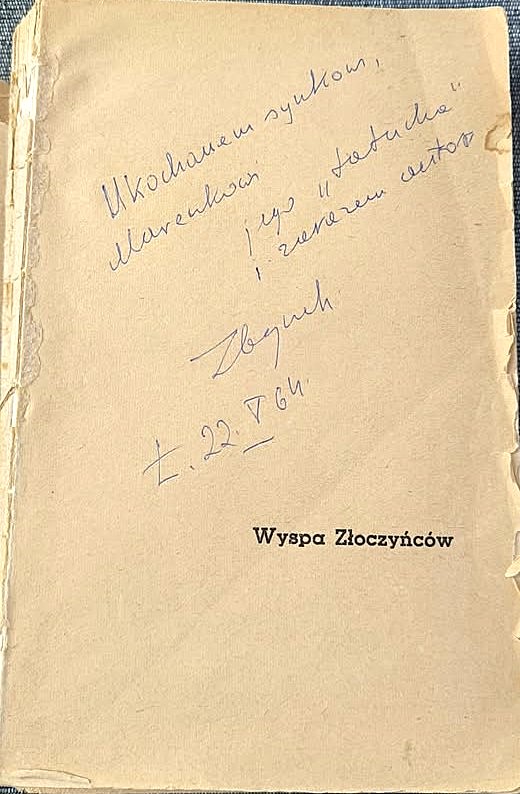 Ukochanem synkowi,
Marenkowi
jego „tatucha"
i zarazem autor
Zbignih.
Ł. 22. V 64.
Wyspa Złoczyńców